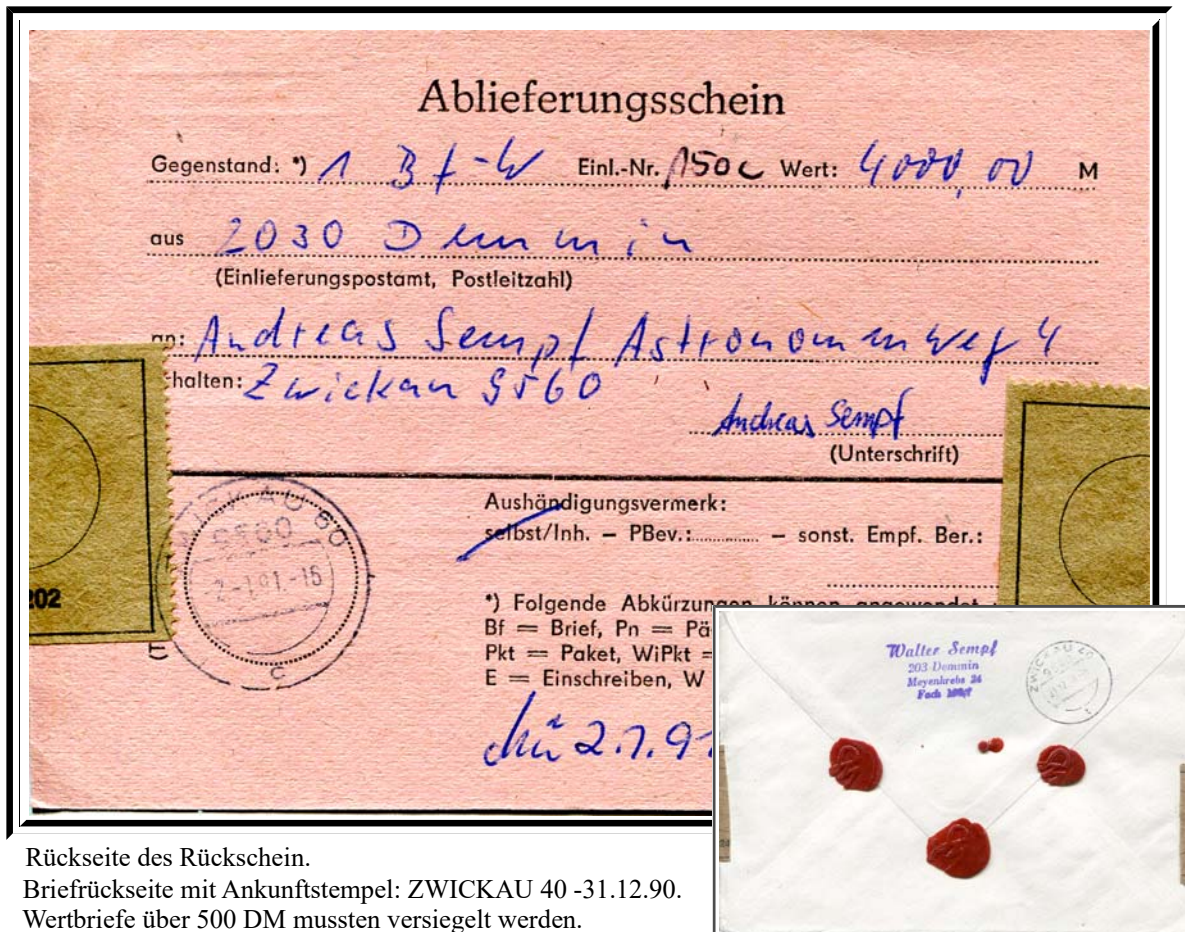 Ablieferungsschein
Gegenstand: *) 1 Bf-W Einl.-Nr. 150c Wert: 4000,00 M
aus 2030 Demmin
(Einlieferungspostamt, Postleitzahl)
an: Andreas Sempf Astronomenweg 4
halten: Zwickau 9560
Andreas Sempf
(Unterschrift)
ZWICKAU 60
9560
-2.-1.91.-16
c
202
Aushändigungsvermerk:
selbst/Inh. – PBev.: – sonst. Empf. Ber.:
*) Folgende Abkürzungen können angewendet
Bf = Brief, Pn = Pä
Pkt = Paket, WiPkt =
E = Einschreiben, W
2.1.91
Walter Sempf
203 Demmin
Meyenkrebs 24
Fach
ZWICKAU 40
Rückseite des Rückschein.
Briefrückseite mit Ankunftstempel: ZWICKAU 40 -31.12.90.
Wertbriefe über 500 DM mussten versiegelt werden.